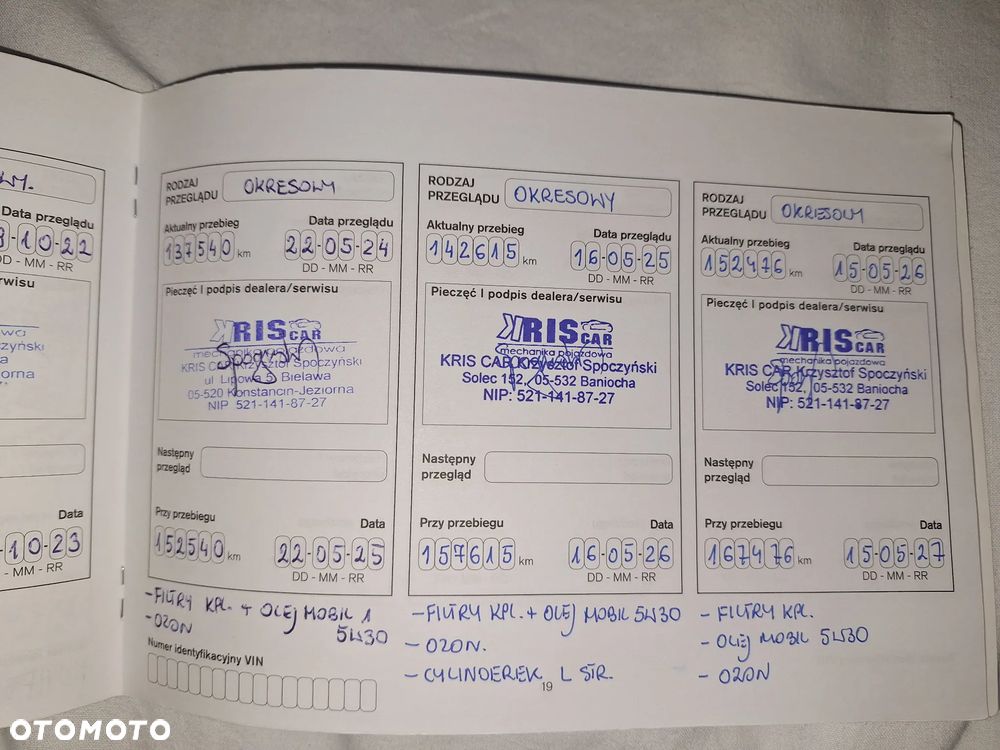 WY.
Data przeglądu
8-10-22
DD - MM - RR
rwisu
Data
-10-23
- MM - RR
RODZAJ
PRZEGLĄDU OKRESOWY
Aktualny przebieg Data przeglądu
137540 km 22-05-24
DD - MM - RR
Pieczęć I podpis dealera/serwisu
KRIS CAR
mechanika pojazdowa
KRIS CAR Krzysztof Spoczyński
ul Lipowa 5 Bielawa
05-520 Konstancin-Jeziorna
NIP 521-141-87-27
Następny
przegląd
Przy przebiegu Data
152540 km 22-05-25
DD - MM - RR
-FILTRY KPL. + OLEJ MOBIL 1
5W30
-OZON
Numer identyfikacyjny VIN
RODZAJ
PRZEGLĄDU OKRESOWY
Aktualny przebieg Data przeglądu
142615 km 16-05-25
DD - MM - RR
Pieczęć I podpis dealera/serwisu
KRIS CAR
mechanika pojazdowa
KRIS CAR Krzysztof Spoczyński
Solec 152, 05-532 Baniocha
NIP: 521-141-87-27
Następny
przegląd
Przy przebiegu Data
157615 km 16-05-26
DD - MM - RR
-FILTRY KPL.+ OLEJ MOBIL 5W30
- OZON.
- CYLINDEREK L STR.
19
RODZAJ
PRZEGLĄDU OKRESOWY
Aktualny przebieg Data przeglądu
152476 km 15-05-26
DD - MM - RR
Pieczęć I podpis dealera/serwisu
KRIS CAR
mechanika pojazdowa
KRIS CAR Krzysztof Spoczyński
Solec 152, 05-532 Baniocha
NIP: 521-141-87-27
Następny
przegląd
Przy przebiegu Data
167476 km 15-05-27
DD - MM - RR
- FILTRY KPL.
- OLEJ MOBIL 5W30
- OZON
OTOMOTO